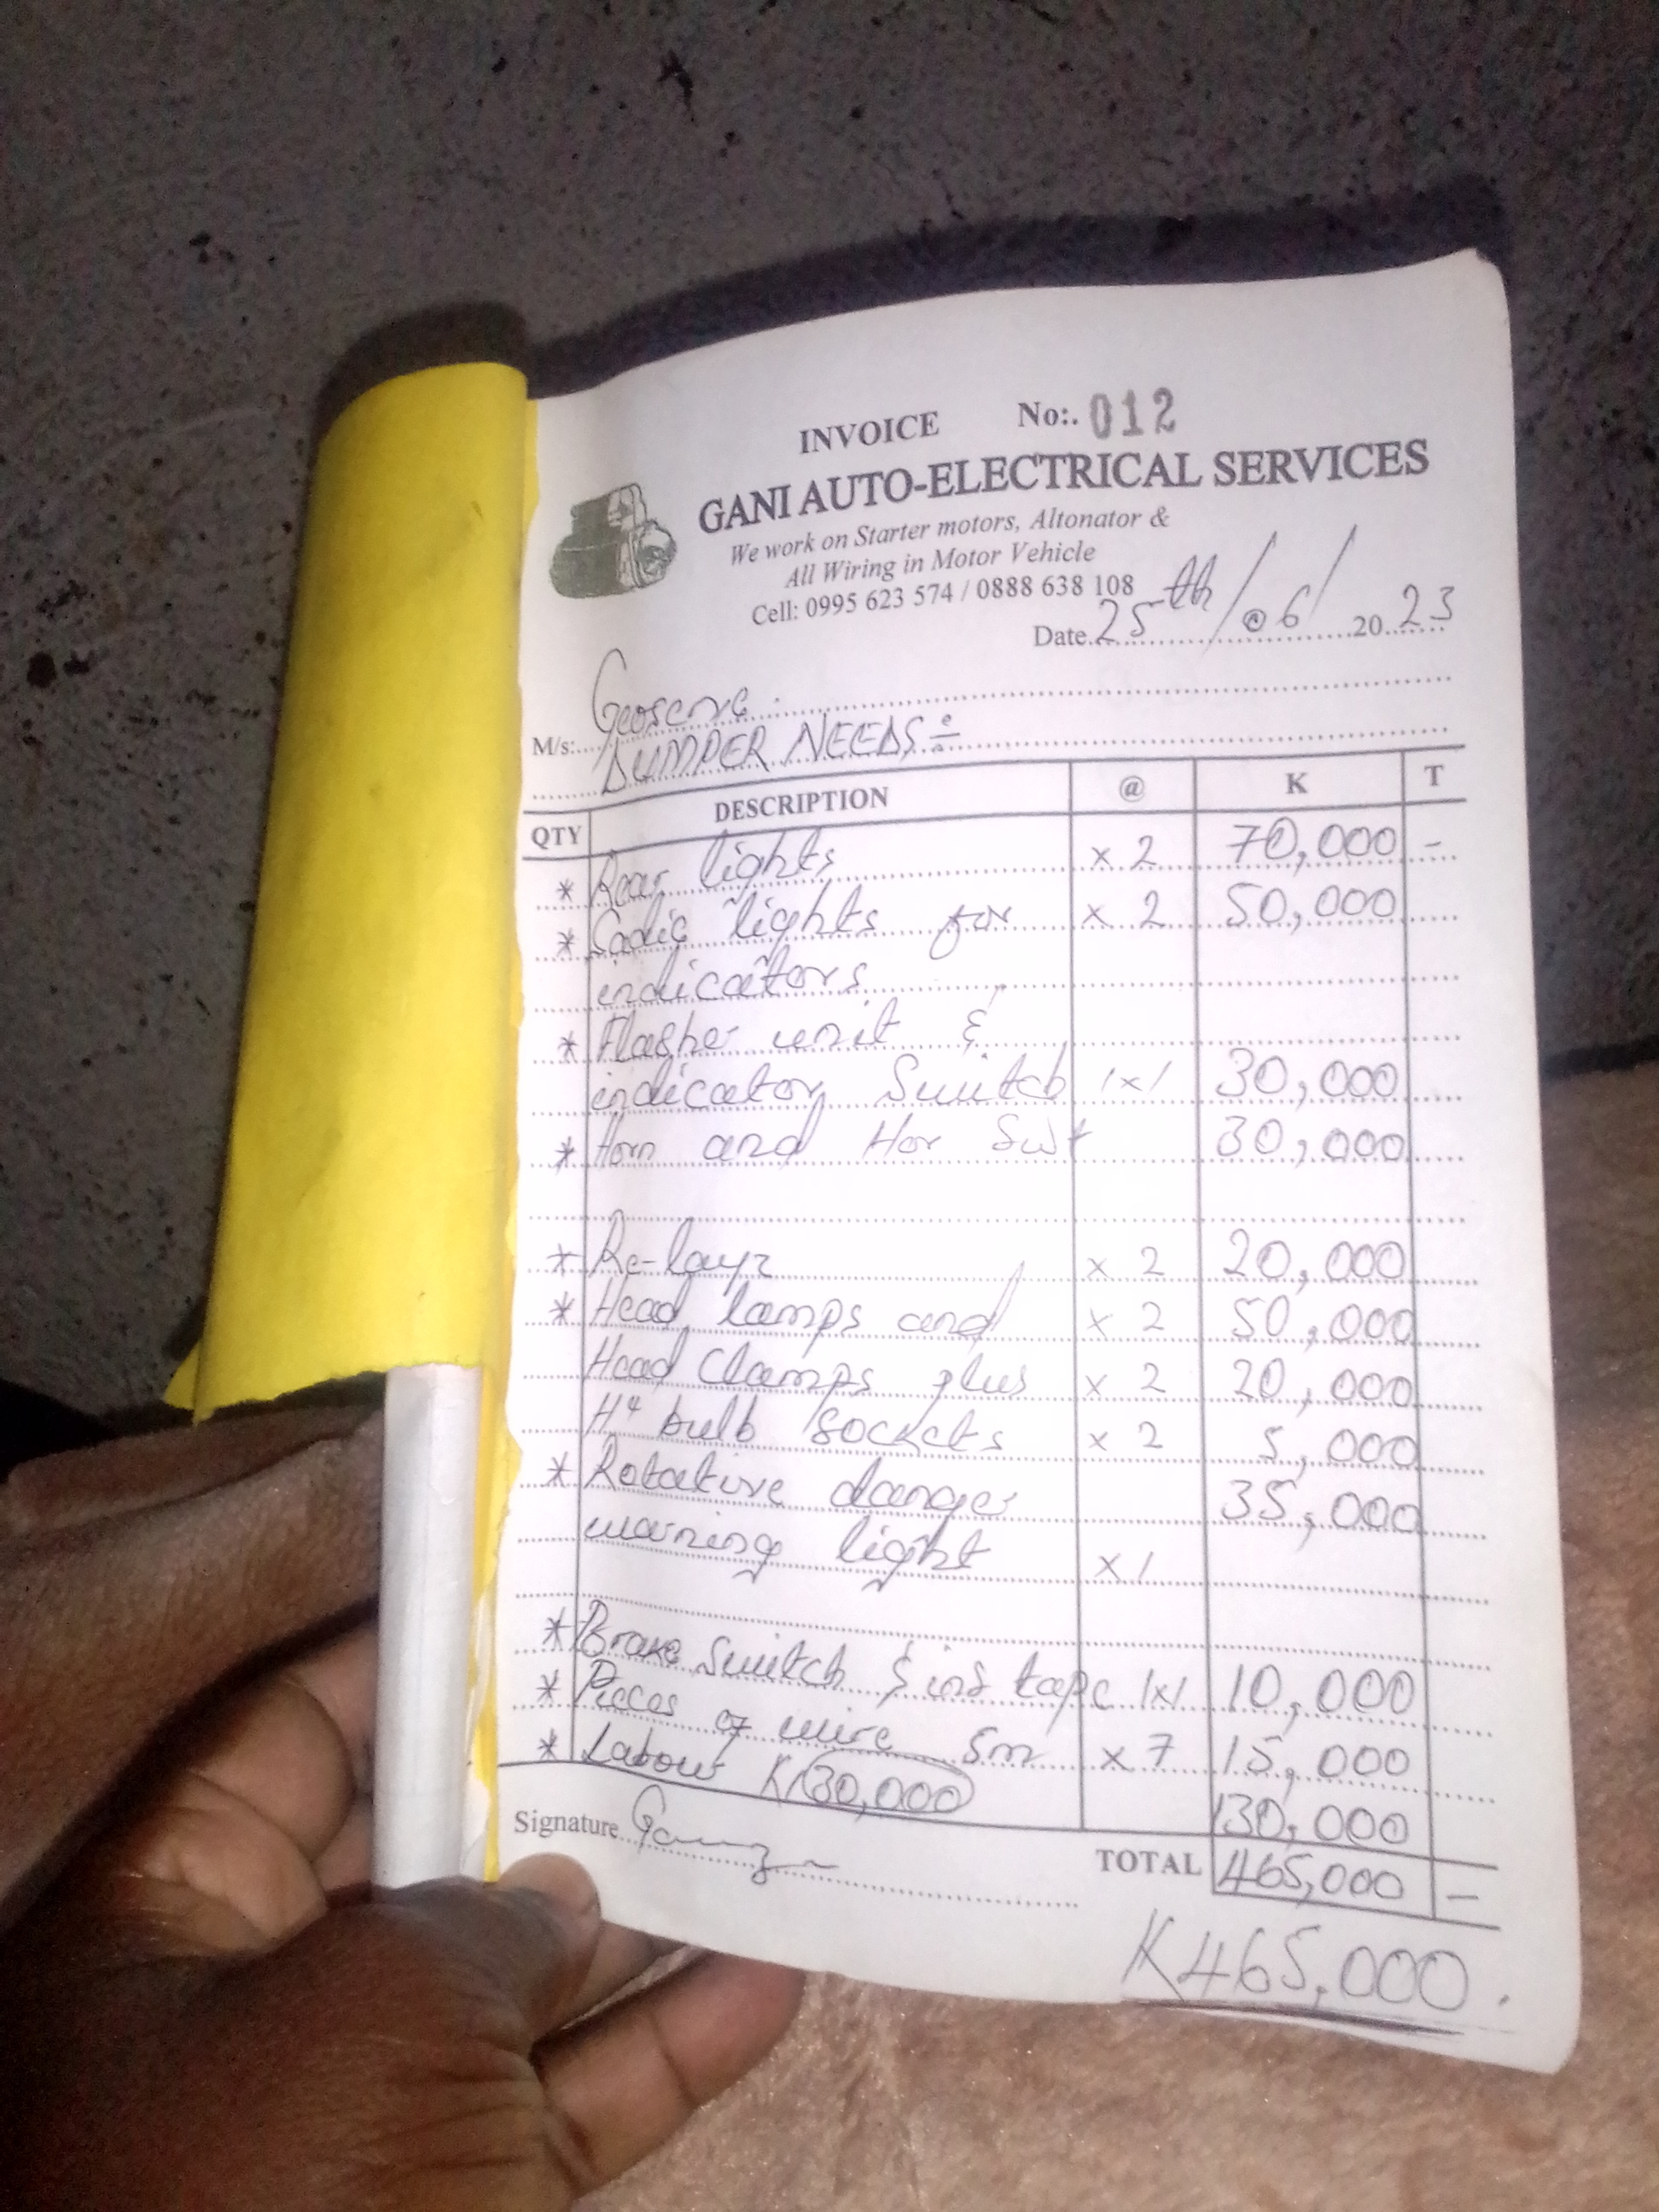 INVOICE No:. 012
GANI AUTO-ELECTRICAL SERVICES
We work on Starter motors, Altonator &
All Wiring in Motor Vehicle
Cell: 0995 623 574 / 0888 638 108
Date 25th/06/2023
M/s: Geoserve
DUMPER NEEDS:-
QTY DESCRIPTION @ K T
* Rear lights x 2 70,000 -
* lights for x 2 50,000
indicators
* Flasher unit &
indicator Switch 1x1 30,000
* Horn and Hor Swt 30,000
* Re-layz x 2 20,000
* Head lamps and x 2 50,000
Head Clamps plus x 2 20,000
H4 bulb Sockets x 2 5,000
* Rotative danger 35,000
warning light x1
* Brake Switch & ins tape 1x1 10,000
* Pieces of wire 5m x 7 15,000
* Labour K130,000 130,000
Signature
TOTAL 465,000 -
K465,000.